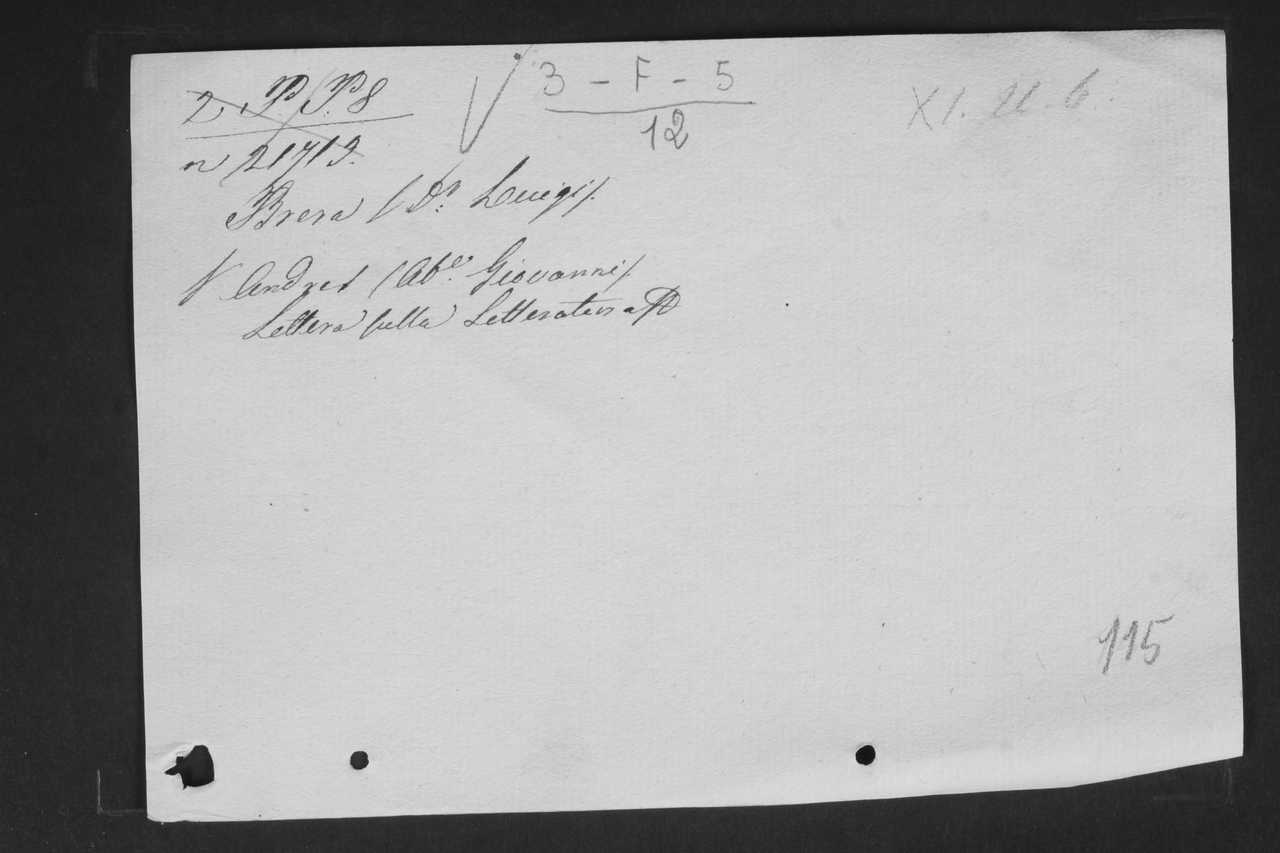 2. P. P. 8
3 - F - 5
12
XI. U. 6.
n 21713.
Brera (Dr. Luigi).
V Andres (Abe. Giovanni)
Lettera sulla Letteratura
115